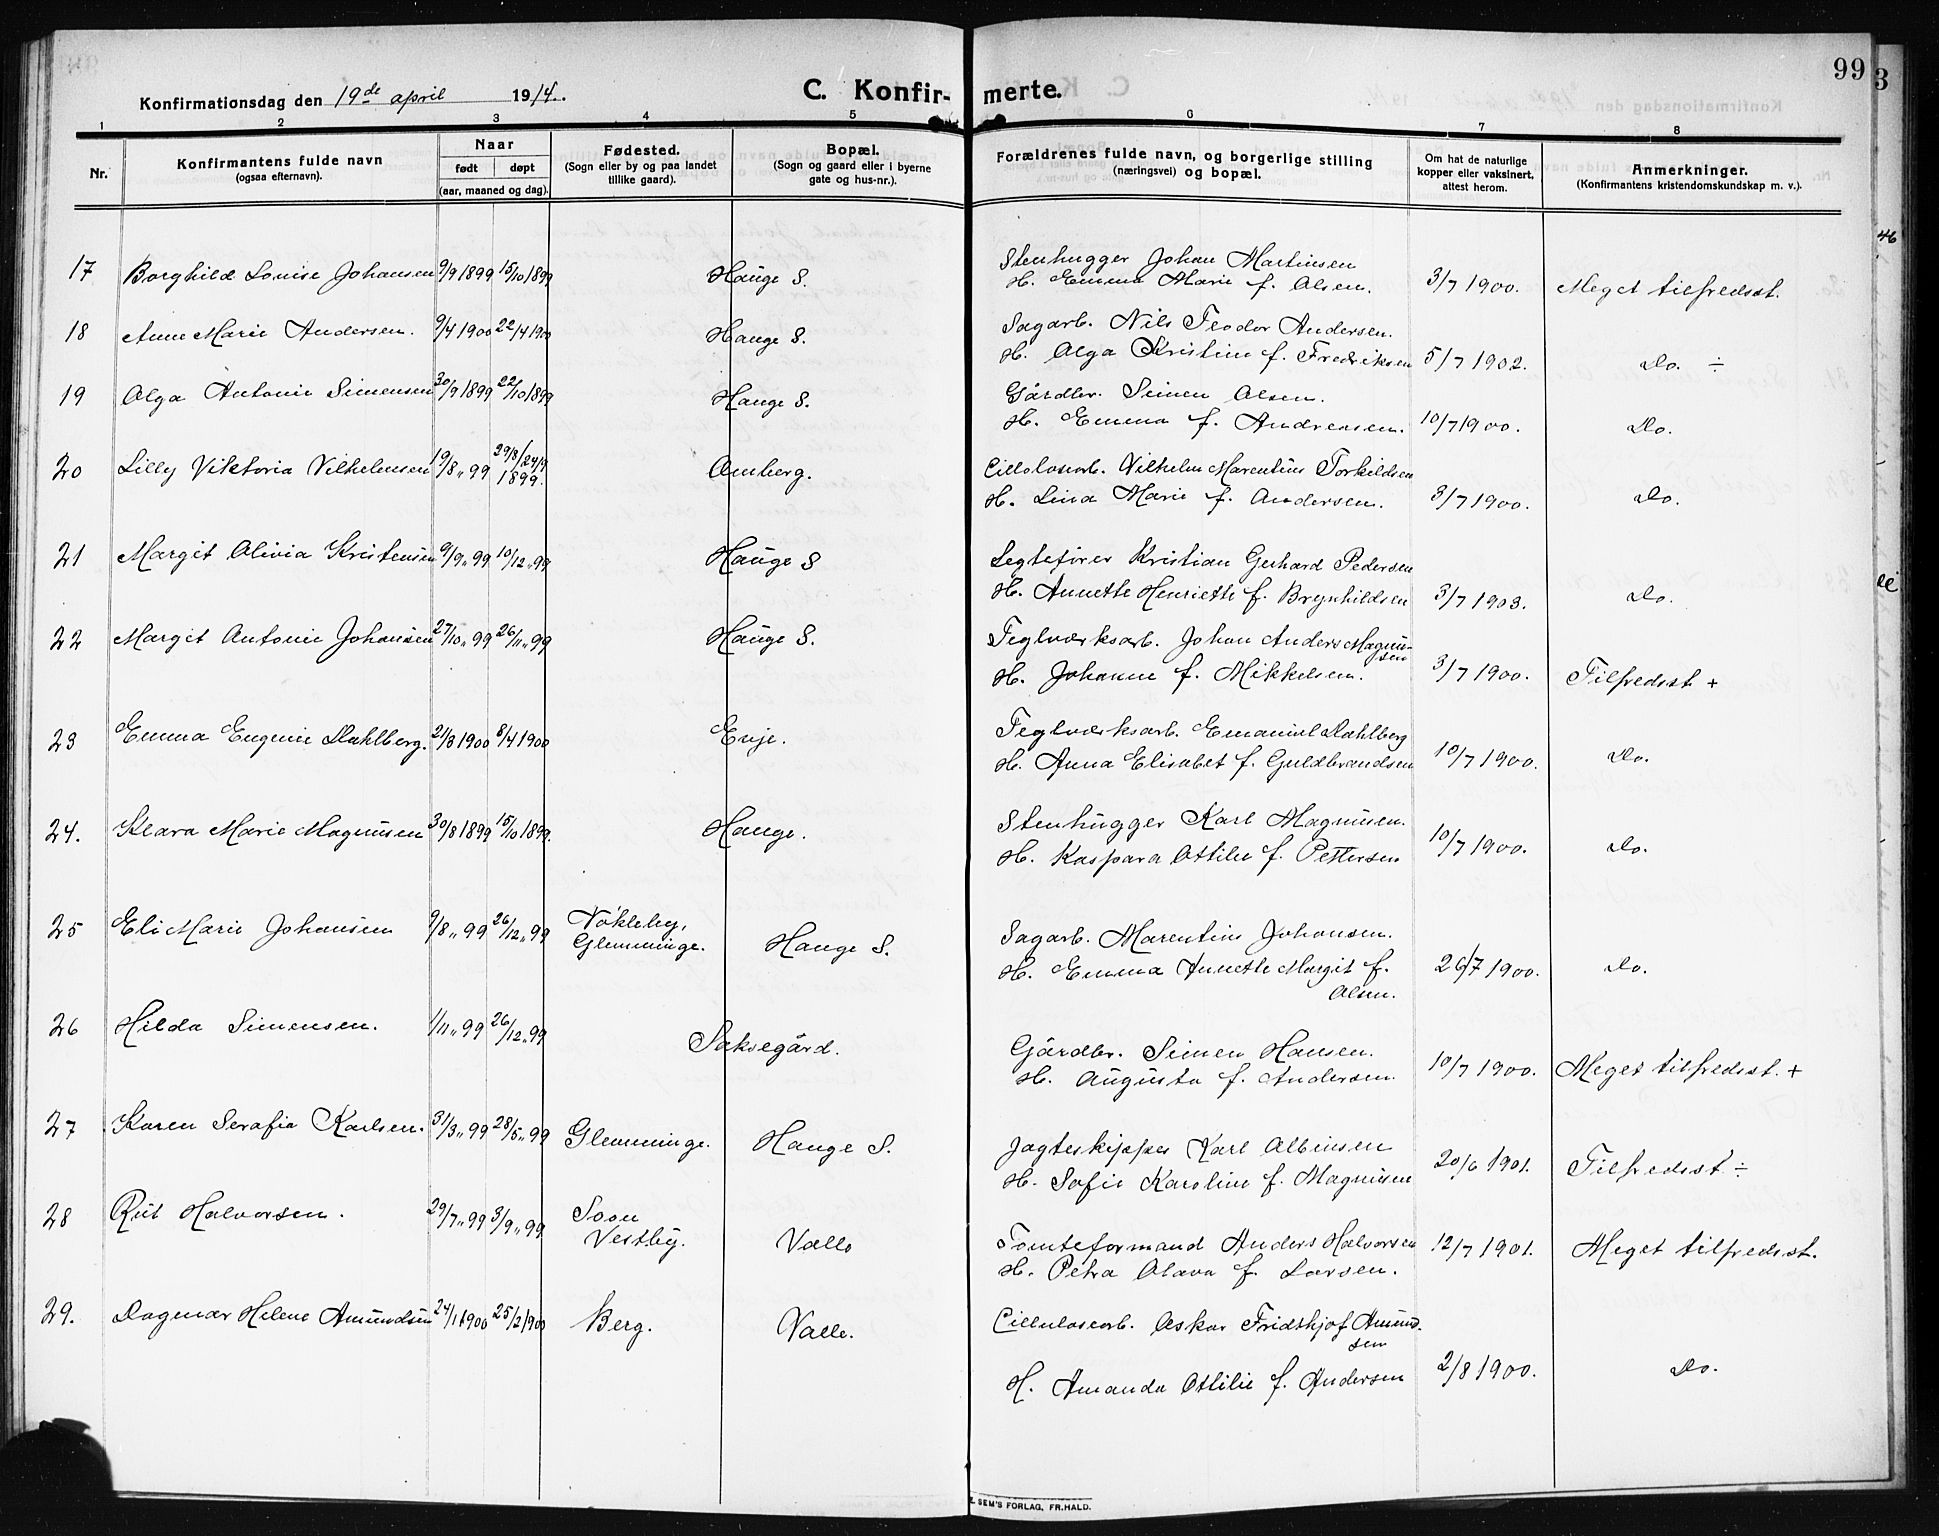 99
3
Konfirmationsdag den 19de april 1914.
C. Konfir- merte.
1 2 3 4 5 6 7 8
Nr.
Konfirmantens fulde navn
(ogsaa efternavn).
Naar
født døpt
(aar, maaned og dag).
Fødested.
(Sogn eller by og paa landet
tillike gaard).
Bopæl.
(Sogn og gaard eller i byerne
gate og hus-nr.).
Forældrenes fulde navn, og borgerlige stilling
(næringsvei) og bopæl.
Om hat de naturlige
kopper eller vaksinert,
attest herom.
Anmerkninger.
(Konfirmantens kristendomskundskap m. v.).
17 Borghild Louise Johansen 9/9 1899 15/10 1899 Hauge S. Stenhugger Johan Martinsen
H. Emma Marie f. Olsen. 3/7 1900. Meget tilfredsst.
18 Anne Marie Andersen. 9/4 1900 22/4 1900 Hauge S. Sagarb. Nils Teodor Andersen.
H. Olga Kristine f. Fredriksen 5/7 1902. Do. ÷
19 Olga Antonie Simensen 30/9 1899 22/10 1899 Hauge S. Gårdbr. Simen Olsen.
H. Emma f. Andreasen. 10/7 1900. Do.
20 Lilly Viktoria Vilhelmsen 19/8 „ 99 29/8/24/9
1899. Omberg. Cellulosarb. Vilhelm Marentius Torkildsen
H. Lina Marie f. Andersen. 3/7 1900. Do.
21 Margit Olivia Kristensen 9/9 „ 99 10/12 „ 99 Hauge S Legtefører Kristian Gerhard Pedersen
H. Annette Henriette f. Brynhildsen 3/7 1903. Do.
22 Margit Antonie Johansen 27/10 „ 99 26/11 „ 99 Hauge S. Teglverksarb. Johan Anders Magnus-
sen
H. Johanne f. Mikkelsen. 3/7 1900. Tilfredsst +
23 Emma Eugenie Dahlberg. 21/3 1900 8/4 1900 Evje. Teglverksarb. Emanuel Dahlberg
H. Anna Elisabet f. Guldbrandsen 10/7 1900. Do.
24. Klara Marie Magnusen 30/8 1899 15/10 1899. Hauge. Stenhugger Karl Magnusen.
H. Kaspara Otilie f. Pettersen 10/7 1900. Do.
25 Eli Marie Johansen 9/8 „ 99 26/12 „ 99 Nøkleby,
Glemminge. Hauge S. Sagarb. Marentius Johansen.
H. Emma Annette Margit f.
Olsen. 26/7 1900. Do.
26 Hilda Simensen. 1/11 „ 99 26/12 „ 99 Saksegård. Gårdbr. Simen Hansen.
H. Augusta f. Andersen. 10/7 1900. Meget tilfredsst. +
27 Karen Serafia Karlsen. 31/3 „ 99 28/5 „ 99 Glemminge. Hauge S. Jagteskipper Karl Albinsen
H. Sofie Karoline f. Magnusen 20/6 1901. Tilfredsst ÷
28 Rut Halvorsen. 29/7 „ 99 3/9 „ 99 Soon
Vestby. Valle Tomteformand Anders Halvorsen
H. Petra Olava f. Larsen. 12/7 1901. Meget tilfredsst.
29. Dagmar Helene Amundsen 24/1 1900 25/2 1900 Berg. Valle. Cellulosearb. Oskar Fridthjof Amund-
sen
H. Amanda Otilie f. Andersen 2/8 1900. Do.
E. SEM'S FORLAG, FR.HALD.